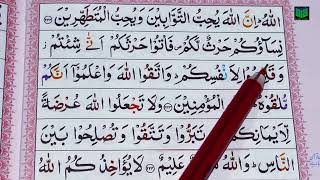 اللهُ ؕ اِنَّ اللهَ يُحِبُّ التَّوَّابِيْنَ وَيُحِبُّ الْمُتَطَهِّرِيْنَ
نِسَآؤُكُمْ حَرْثٌ لَّكُمْ فَاْتُوْا حَرْثَكُمْ اَنّٰى شِئْتُمْ
لِاَنْفُسِكُمْ ؕ وَاتَّقُوا اللهَ وَاعْلَمُوْۤا اَنَّكُمْ
مُّلٰقُوْهُ ؕ الْمُؤْمِنِيْنَ وَلَا تَجْعَلُوا اللهَ عُرْضَةً
لِّاَيْمَانِكُمْ تَبَرُّوْا وَتَتَّقُوْا وَتُصْلِحُوْا بَيْنَ
النَّاسِ ؕ وَاللهُ عَلِيْمٌ لَا يُؤَاخِذُكُمُ اللهُ